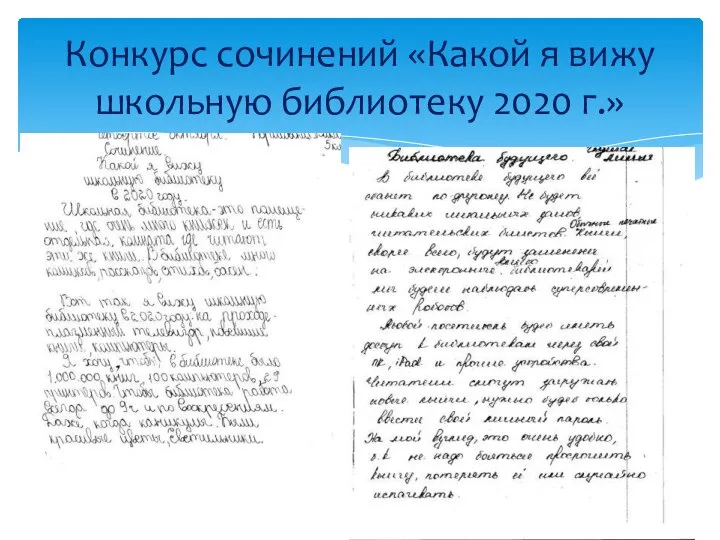 Конкурс сочинений «Какой я вижу
школьную библиотеку 2020 г.»
октября.
Сочинение
Какой я вижу
школьную библиотеку
в 2020 году.
Школьная библиотека-это помеще-
ние, где очень много книжек и есть
отдельная комната где читают
эти же книги. В библиотеке много
рассказов, стихов,
Вот так я вижу школьную
библиотеку в 2020 году: на
телевизор,
книг в компьютере.
Я хочу, чтобы в библиотеке было
1.000.000 книг, 100 компьютеров, 29
принтеров. Чтобы библиотека работа
до 9ч и по воскресениям.
Даже когда каникулы. Были
красивые цветы, светильники.
Библиотека будущего.
В библиотеке будущего всё
станет по-другому. Не будет
никаких читальных залов,
читательских билетов. Обычные печатные книги,
скорее всего, будут заменены
на электронные. Вместо библиотекарей
мы будем наблюдать суперсовремен-
ных роботов.
Любой посетитель будет иметь
доступ к библиотекам через свой
ПК, iPad и прочие устройства.
Читатели смогут загружать
новые книги, нужно будет только
ввести свой личный пароль.
На мой взгляд, это очень удобно,
т.к не надо бояться просрочить
книгу, потерять её или случайно
испачкать.